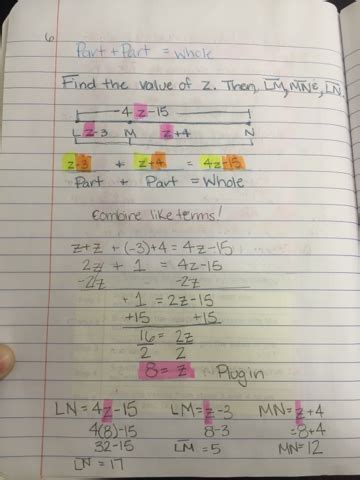 6
Part + Part = Whole
Find the value of z. Then, LM, MN &, LN.
4z-15
L z-3 M z+4 N
z-3 + z+4 = 4z-15
Part + Part = Whole
Combine like terms!
z+z + (-3)+4 = 4z-15
2z + 1 = 4z-15
-2z -2z
+1 = 2z-15
+15 +15
16 = 2z
2 2
8 = z Plug in
LN = 4z-15 LM = z-3 MN = z+4
4(8)-15 8-3 =8+4
32-15 LM = 5 MN = 12
LN = 17